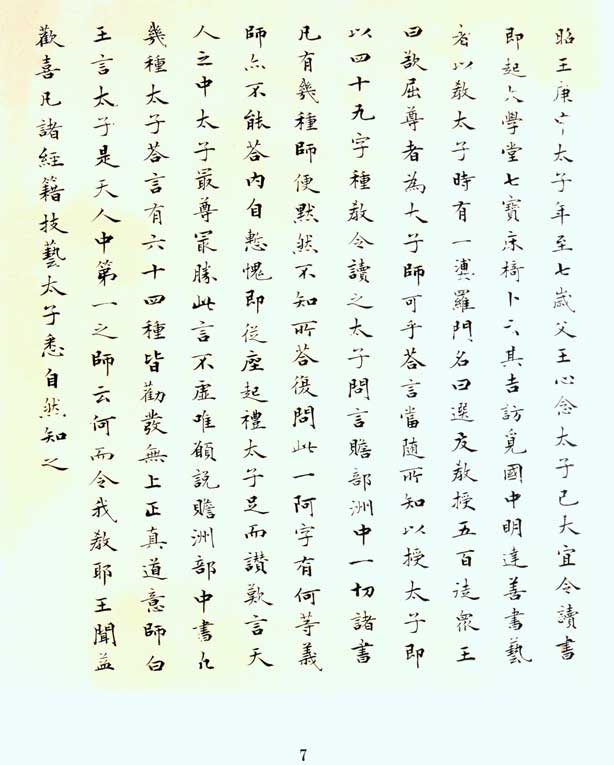 昭王庚寅太子年至七歲父王心念太子已大宜令讀書
即起大學堂七寶床椅卜六其吉訪覓國中明達善書藝
者以教太子時有一婆羅門名曰選友教授五百徒眾王
曰欲屈尊者為太子師可乎答言當隨所知以授太子即
以四十九字種教令讀之太子問言贍部洲中一切諸書
凡有幾種師便默然不知所答復問此一阿字有何等義
師亦不能答內自慙愧即從座起禮太子足而讚歎言天
人之中太子最尊最勝此言不虛唯願說贍洲部中書凡
幾種太子答言有六十四種皆勸發無上正真道意師白
王言太子是天人中第一之師云何而令我教耶王聞益
歡喜凡諸經籍技藝太子悉自然知之
7